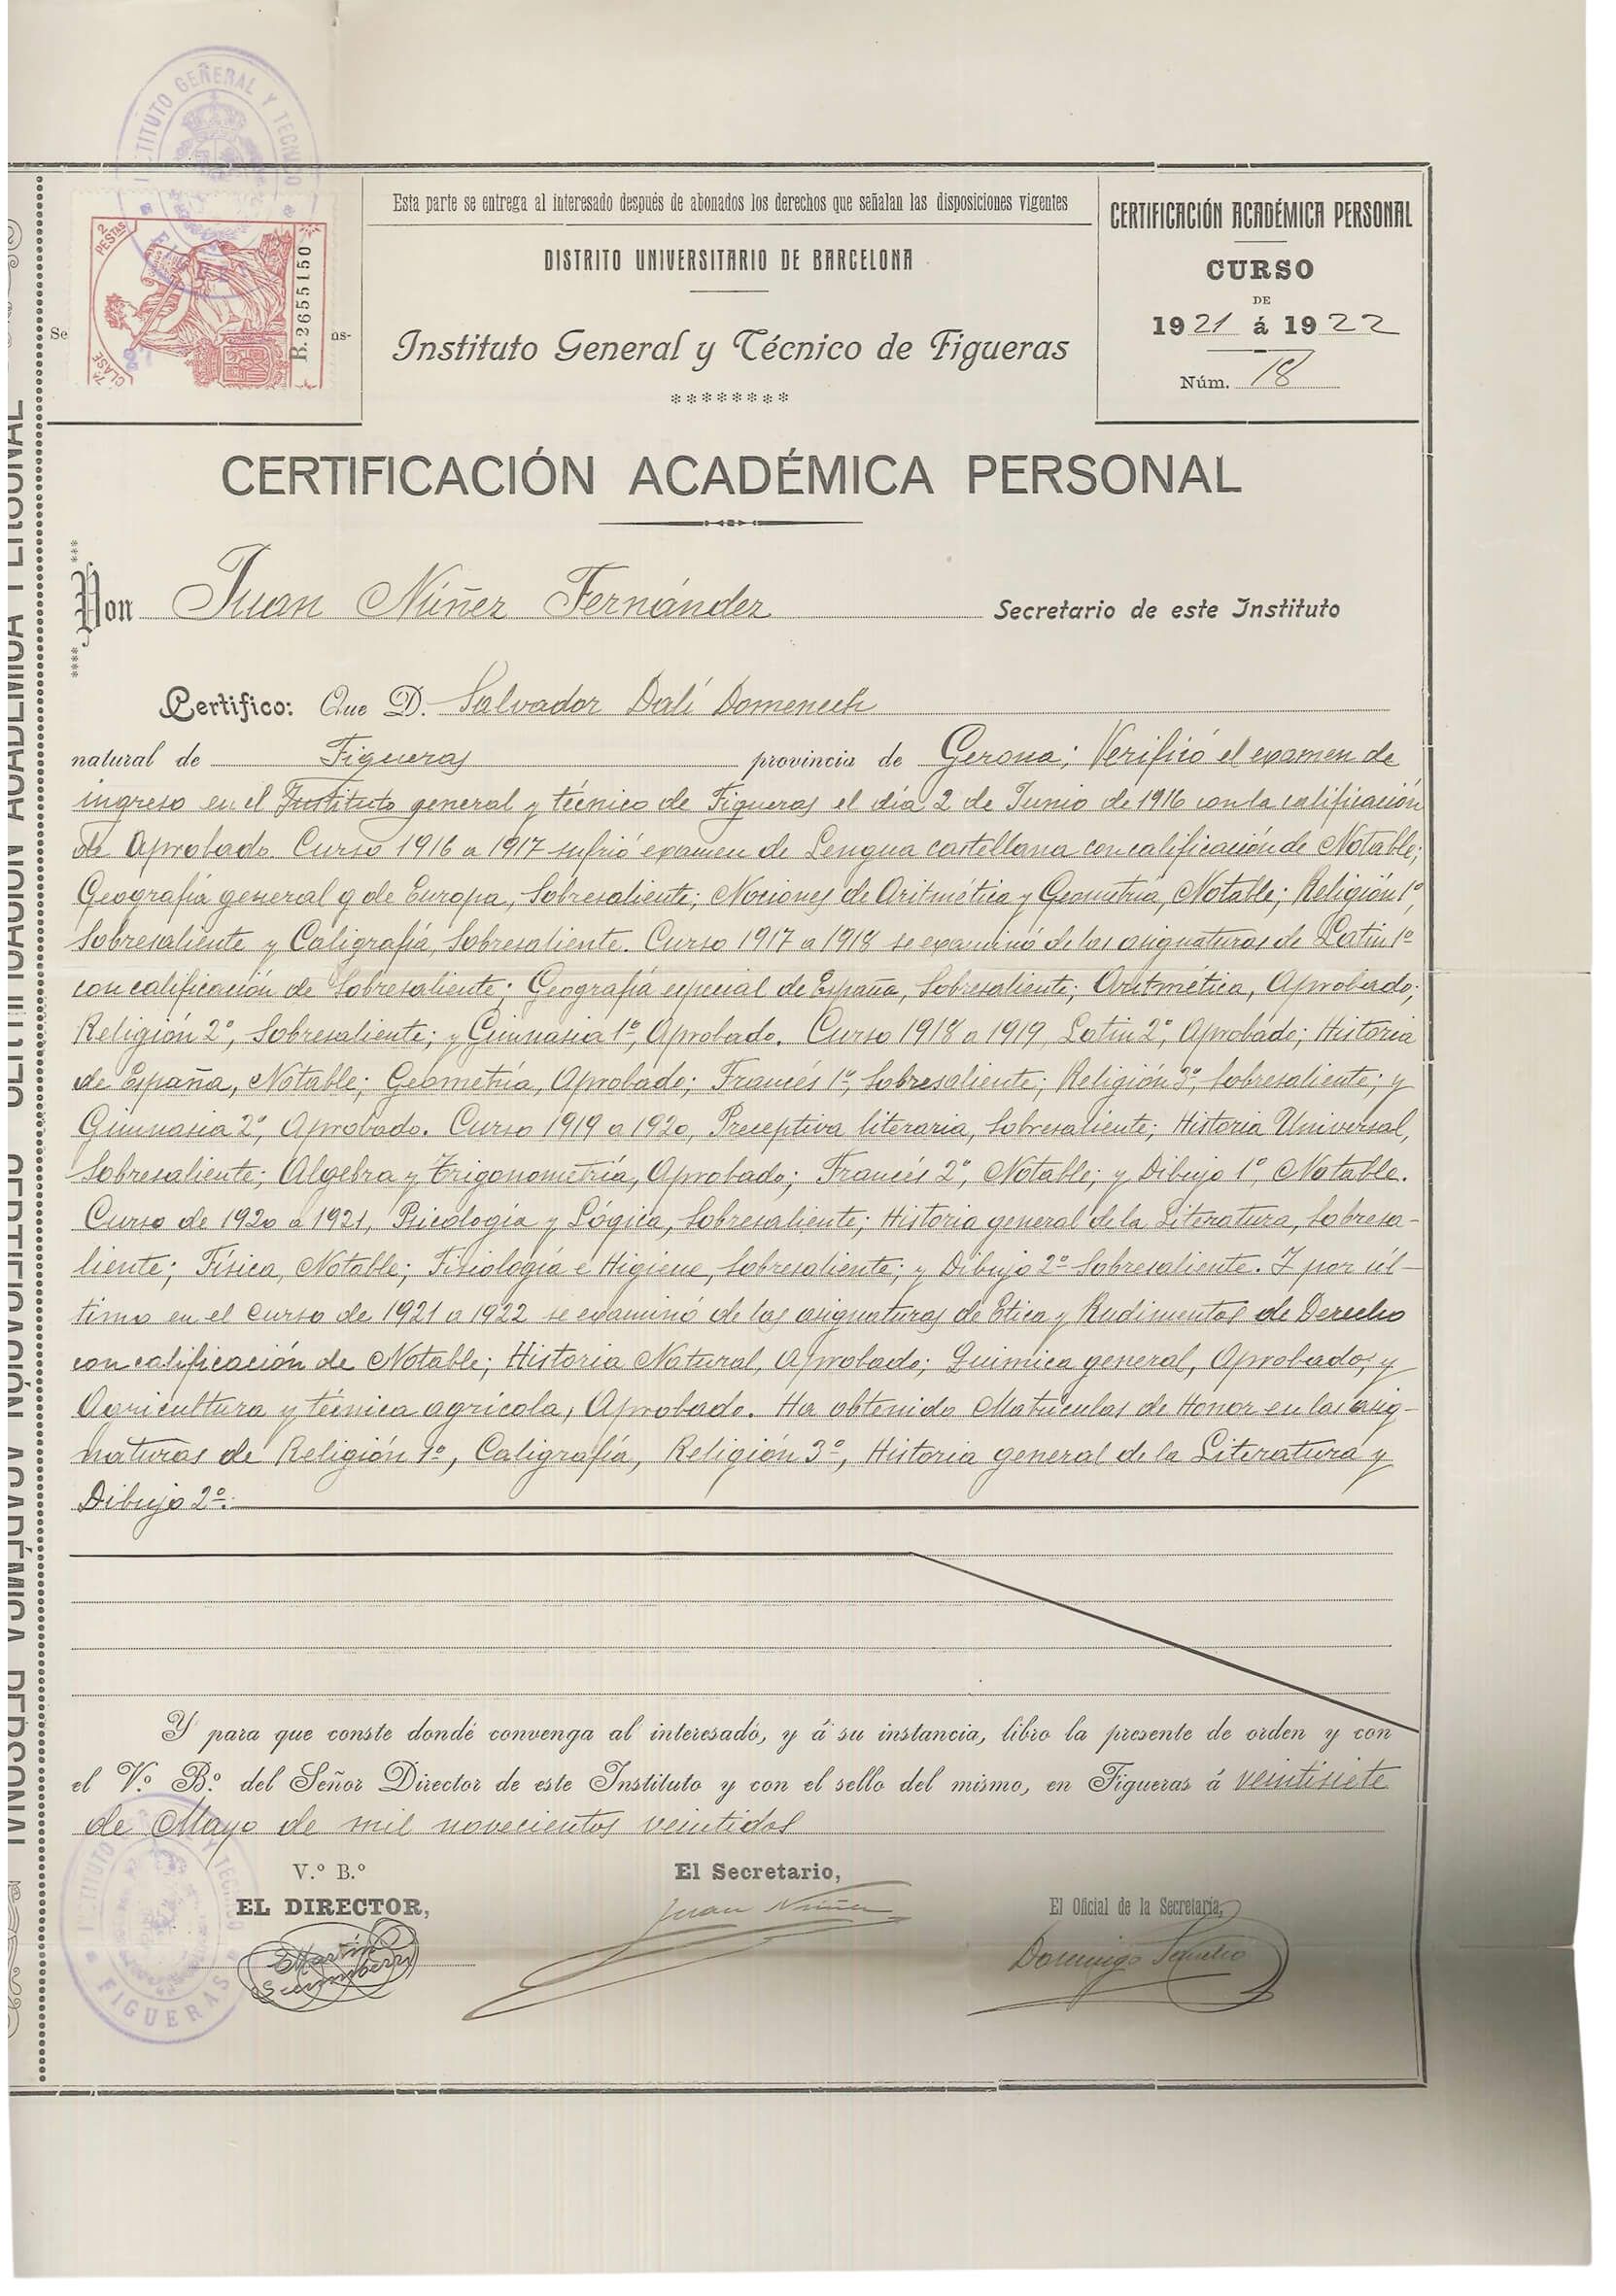 INSTITUTO GENERAL Y TECNICO
2
PESETAS
7ª
CLASE
B.2655150
Se
ús-
Esta parte se entrega al interesado después de abonados los derechos que señalan las disposiciones vigentes
DISTRITO UNIVERSITARIO DE BARCELONA
Instituto General y Técnico de Figueras
********
CERTIFICACIÓN ACADÉMICA PERSONAL
CURSO
DE
1921 á 1922
Núm. 18
CERTIFICACIÓN ACADÉMICA PERSONAL
Don Juan Núñez Fernández Secretario de este Instituto
Certifico: Que D. Salvador Dalí Domenech
natural de Figueras provincia de Gerona; Verificó el examen de
ingreso en el Instituto general y técnico de Figueras el día 2 de Junio de 1916 con la calificación
de Aprobado. Curso 1916 a 1917 sufrió examen de Lengua castellana con calificación de Notable;
Geografía general y de Europa, Sobresaliente; Nociones de Aritmética y Geometría, Notable; Religión 1º,
Sobresaliente y Caligrafía, Sobresaliente. Curso 1917 a 1918 se examinó de las asignaturas de Latín 1º
con calificación de Sobresaliente; Geografía especial de España, Sobresaliente; Aritmética, Aprobado;
Religión 2º, Sobresaliente; y Gimnasia 1º, Aprobado. Curso 1918 a 1919, Latin 2º, Aprobado; Historia
de España, Notable; Geometría, Aprobado; Francés 1º, Sobresaliente; Religión 3º, Sobresaliente; y
Gimnasia 2º, Aprobado. Curso 1919 a 1920, Preceptiva literaria, Sobresaliente; Historia Universal,
Sobresaliente; Algebra y Trigonometría, Aprobado; Francés 2º, Notable; y Dibujo 1º, Notable.
Curso de 1920 a 1921, Psicología y Lógica, Sobresaliente; Historia general de la Literatura, Sobresa-
liente; Física, Notable; Fisiología é Higiene, Sobresaliente; y Dibujo 2º Sobresaliente. Y por úl-
timo en el curso de 1921 a 1922 se examinó de las asignaturas de Etica y Rudimentos de Derecho
con calificación de Notable; Historia Natural, Aprobado; Quimica general, Aprobado; y
Agricultura y técnica agrícola, Aprobado. Ha obtenido Matrículas de Honor en las asig-
naturas de Religión 1º, Caligrafía, Religión 3º, Historia general de la Literatura y
Dibujo 2º.
Y para que conste donde convenga al interesado, y á su instancia, libro la presente de orden y con
el V.º B.º del Señor Director de este Instituto y con el sello del mismo, en Figueras á veintisiete
de Mayo de mil novecientos veintidos
V.º B.º
EL DIRECTOR,
El Secretario,
Juan Núñez
El Oficial de la Secretaría,
Domingo
FIGUERAS
CERTIFICACIÓN ACADÉMICA PERSONAL